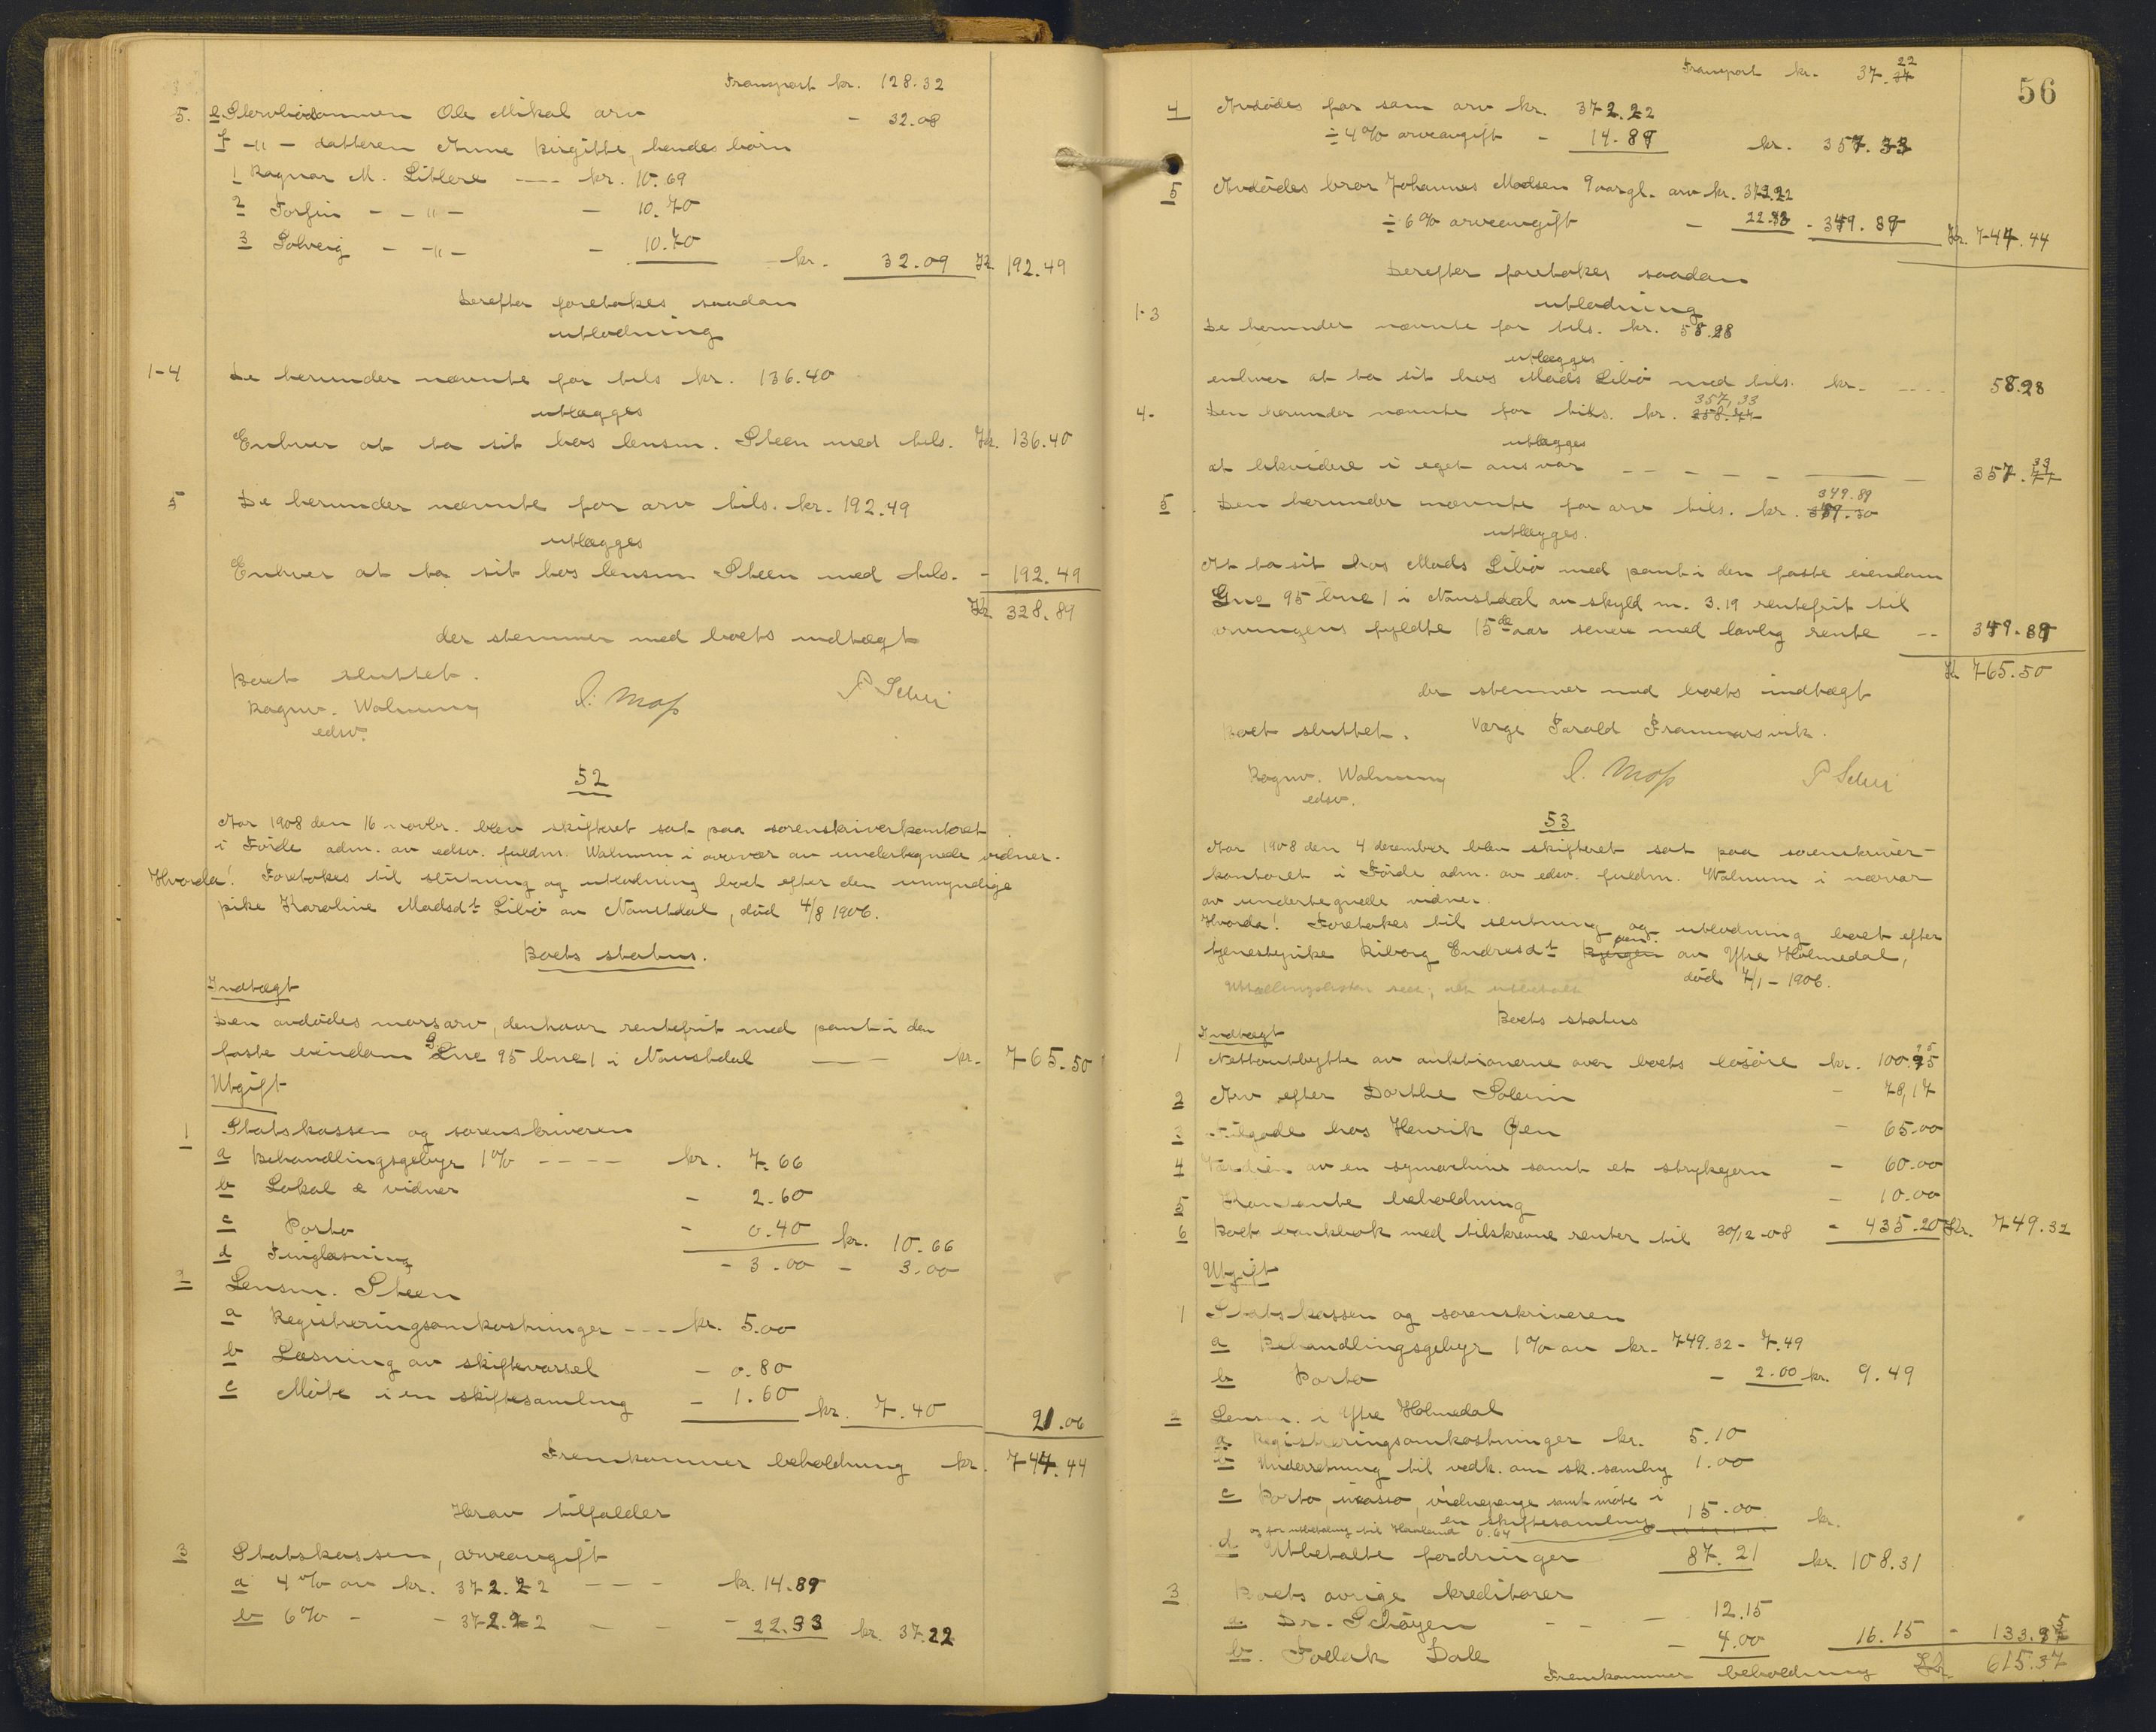 Transport kr. 128.32
5. e. Stervbosønnen Ole Mikal arv - 32.08
f -"- datteren Anne Birgitte, hendes børn
1 Ragnar M. Liblere ---- kr. 10.69
2 Torfin - -"- - 10.70
3 Solveig - -"- - 10.70 kr. 32.09 Kr. 192.49
Derefter foretokes saadan
utlodning
1-4 De herunder nævnte for tils kr. 136.40
utlægges
Enhver at ta sit hos lensm. Steen med tils. Kr. 136.40
5 De herunder nævnte for arv tils. kr. 192.49
utlægges
Enhver at ta sit hos lensm Steen med tils. - 192.49
Kr 328.89
der stemmer med boets indtægt
Boet sluttet.
Ragnv. Walnum
edsv.
I. Moss
P Schei
52
Aar 1908 den 16 novbr. blev skifteret sat paa sorenskriverkontoret
i Førde adm. av edsv. fuldm. Walnum i overvær av undertegnede vidner.
Hvorda! Foretokes til slutning og utlodning boet efter den umyndige
pike Karoline Madsdt Libø av Naustdal, død 4/8 1906.
Boets status.
Indtægt
Den avdødes morsarv, den haar rentefrit med pant i den
faste eiendom Gne 95 bne 1 i Naustdal ---- kr. 765.50
Utgift
1 Statskassen og sorenskriveren
a Behandlingsgebyr 1% ---- kr. 7.66
b Lokal & vidner - 2.60
c Porto - 0.40 kr. 10.66
d Tinglæsning - 3.00 - 3.00
2 Lensm. Steen
a Registreringsomkostninger --- kr. 5.00
b Læsning av skiftevarsel - 0.80
c Møte i en skiftesamling - 1.60 kr. 7.40 21.06
Fremkommer beholdning kr. 744.44
Herav tilfalder
3 Statskassen, arveavgift
a 4% av kr. 372.22 --- kr. 14.89
b 6% - - 372.22 - - - 22.33 kr. 37.22
56
Transport kr. 37.22
4 Avdødes far som arv kr. 372.22
÷ 4% arveavgift - 14.89 kr. 357.33
5 Avdødes bror Johannes Madsen 9 aargl. arv kr. 372.22
÷ 6% arveavgift - 22.33 - 349.89 Kr. 744.44
Derefter foretokes saadan
utlodning
1-3 De herunder nævnte for tils. kr. 58.28
utlægges
enhver at ta sit hos Mads Libø med tils. kr. ---- 58.28
4- Den herunder nævnte for tils. kr. 357,33
utlægges
at likvidere i eget ansvar ---- 357.33
5 Den herunder nævnte for arv tils. kr. 349.89
utlægges.
At ta sit hos Mads Libø med pant i den faste eiendom
Gno 95 bne 1 i Naustdal av skyld m. 3.19 rentefrit til
arvingens fyldte 15de aar senere med lovlig rente -- 349.89
Kr 765.50
der stemmer med boets indtægt
Boet sluttet. Værge Tarald Frammarsvik.
Ragnv. Walnum
edsv.
I. Moss
P Schei
53
Aar 1908 den 4 desember blev skifteret sat paa sorenskriver-
kontoret i Førde adm. av edsv. fuldm. Walnum i nærvær
av undertegnede vidner.
Hvorda! Foretokes til slutning og utlodning boet efter
tjenestepike Riborg Endresdt Bjergen øen av Ytre Holmedal,
død 4/1 - 1906.
Boets status
Indtægt
1 Nettoutbytte av auktionerne over boets løsøre kr. 100.95
2 Arv efter Dorthe Solem - 78,17
3 Tilgode hos Henrik Øen - 65.00
4 Værdien av en symaskine samt et strykejern - 60.00
5 Kontante beholdning - 10.00
6 Boets bankbok med tilskrevne renter til 30/12-08 - 435.20 Kr. 749.32
Utgift
1 Statskassen og sorenskriveren
a Behandlingsgebyr 1% av kr. 749.32 - 7.49
b Porto - 2.00 kr. 9.49
2 Lensm. i Ytre Holmedal
a Registreringsomkostninger kr. 5.10
b Underretning til vedk. om sk. samling 1.00
c Porto, incasso, vidnepenge samt møte i
en skiftesamling 15.00 kr.
og for utbetaling til Havland 0.64
d Utbetalte fordringer 87.21 kr. 108.31
3 Boets øvrige kreditorer
a Dr. Schøyen - - - 12.15
b. Tollak Dale - 4.00 16.15 - 133.95
Fremkommer beholdning Kr. 615.37